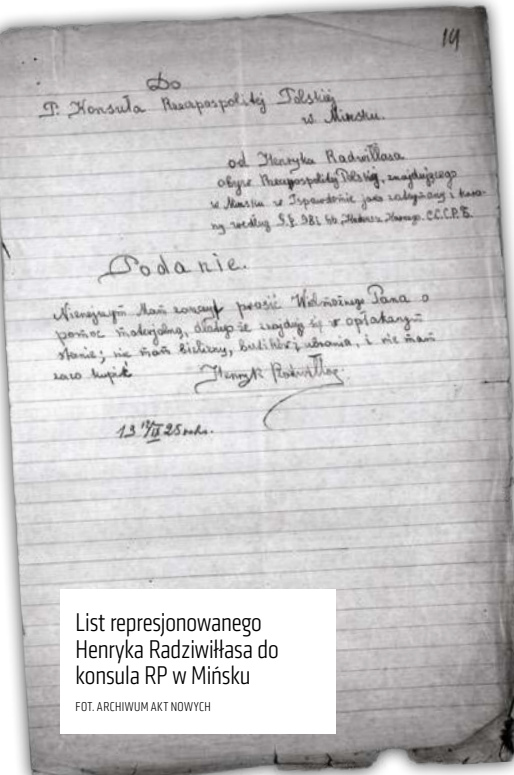 19
Do
P. Konsula Rzeczpospolitej Polskiej
w Mińsku.
od Henryka Radwiłłasa
obyw. Rzeczpospolitej Polskiej, znajdującego
w Mińsku w Isprawdomie jako i kara-
ny według
Podanie.
Niniejszym Mam zaszczyt prosić Wielmożnego Pana o
pomoc materjalną, dlatego że znajduję się w opłakanym
stanie; nie mam bielizny, butików i ubrania, i nie mam
zaco kupić
Henryk Radwiłłas.
List represjonowanego
Henryka Radziwiłłasa do
konsula RP w Mińsku
FOT. ARCHIWUM AKT NOWYCH